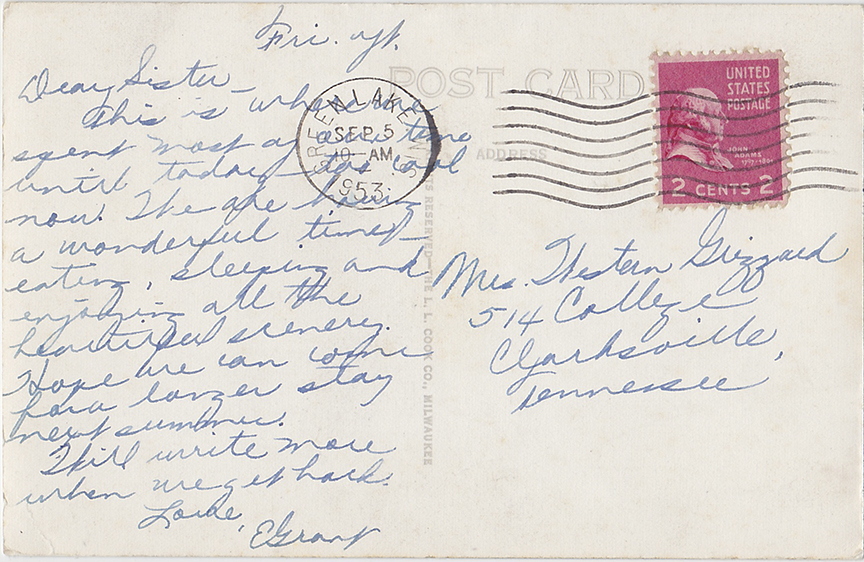 Fri. nt.
Dear Sister -
This is where we
spent most of our time
until today - too cool
now. We are having
a wonderful time -
eating, sleeping and
enjoying all the
beautiful scenery.
Hope we can come
for a longer stay
next summer.
Will write more
when we get back.
Love,
EGrant
POST CARD
ADDRESS
GREEN LAKE WIS
SEP 5
10 - AM
1953
UNITED
STATES
POSTAGE
JOHN
ADAMS
2 CENTS 2
Mrs. Western Grizzard
514 College
Clarksville,
Tennessee
S RESERVED—THE L. L. COOK CO., MILWAUKEE